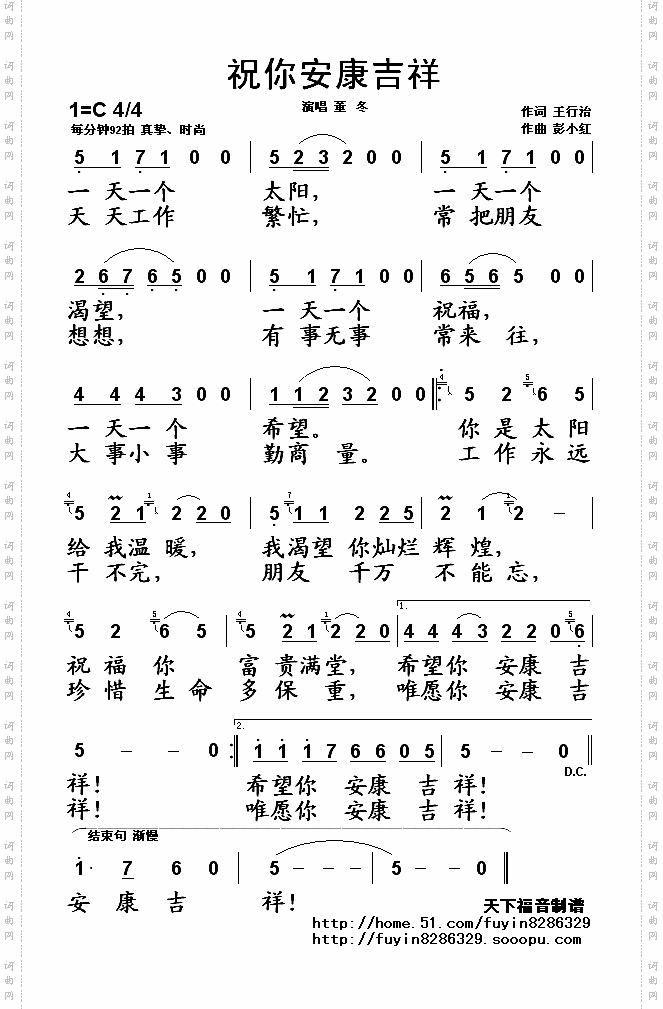 祝你安康吉祥
1=C 4/4
演唱 董 冬
作词 王行治
每分钟92拍 真挚、时尚
作曲 彭小红
5 1 7 1 0 0 | 5 2 3 2 0 0 | 5 1 7 1 0 0
一 天一个 太阳, 一 天一个
天 天工作 繁忙, 常 把朋友
2 6 7 6 5 0 0 | 5 1 7 1 0 0 | 6 5 6 5 5 0 0
渴望, 一 天一个 祝福,
想想, 有 事无事 常来 往,
4 4 4 3 0 0 | 1 1 2 3 2 0 0 5 2 6 5
一 天一个 希望。 你 是 太 阳
大 事小 事 勤商 量。 工 作 永 远
5 2 1 2 2 0 | 5 1 1 2 2 5 | 2 1 2 –
给 我温 暖, 我渴望 你灿烂 辉 煌,
干 不完, 朋友 千万 不 能 忘,
5 2 6 5 | 5 2 1 2 2 0 1. 4 4 4 3 2 2 0 6
祝 福 你 富 贵满堂, 希望你 安康 吉
珍 惜 生 命 多 保 重, 唯愿你 安康 吉
5 – – 0 2. 1 1 1 7 6 6 0 5 | 5 – – 0
D.C.
祥! 希望你 安康 吉 祥!
祥! 唯愿你 安康 吉 祥!
结束句 渐慢
1· 7 6 0 | 5 – – – 5 – – 0
安 康 吉 祥!
天下福音制谱
http://home.51.com/fuyin8286329
http://fuyin8286329.sooopu.com